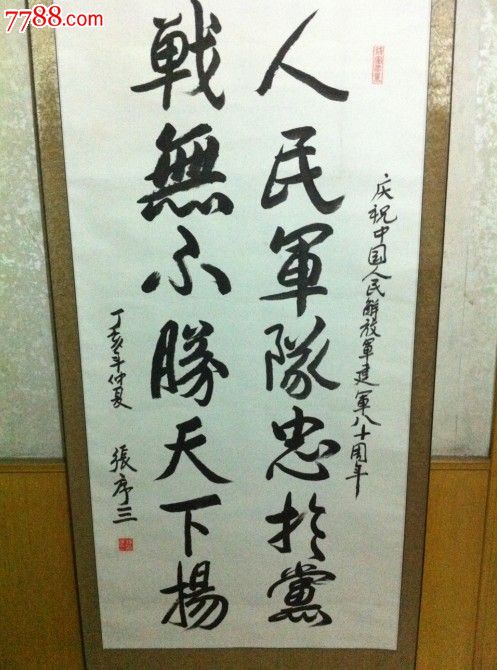 7788.com
庆祝中国人民解放军建軍八十周年
人民軍隊忠於黨
戰無不勝天下揚
丁亥年仲夏
張序三